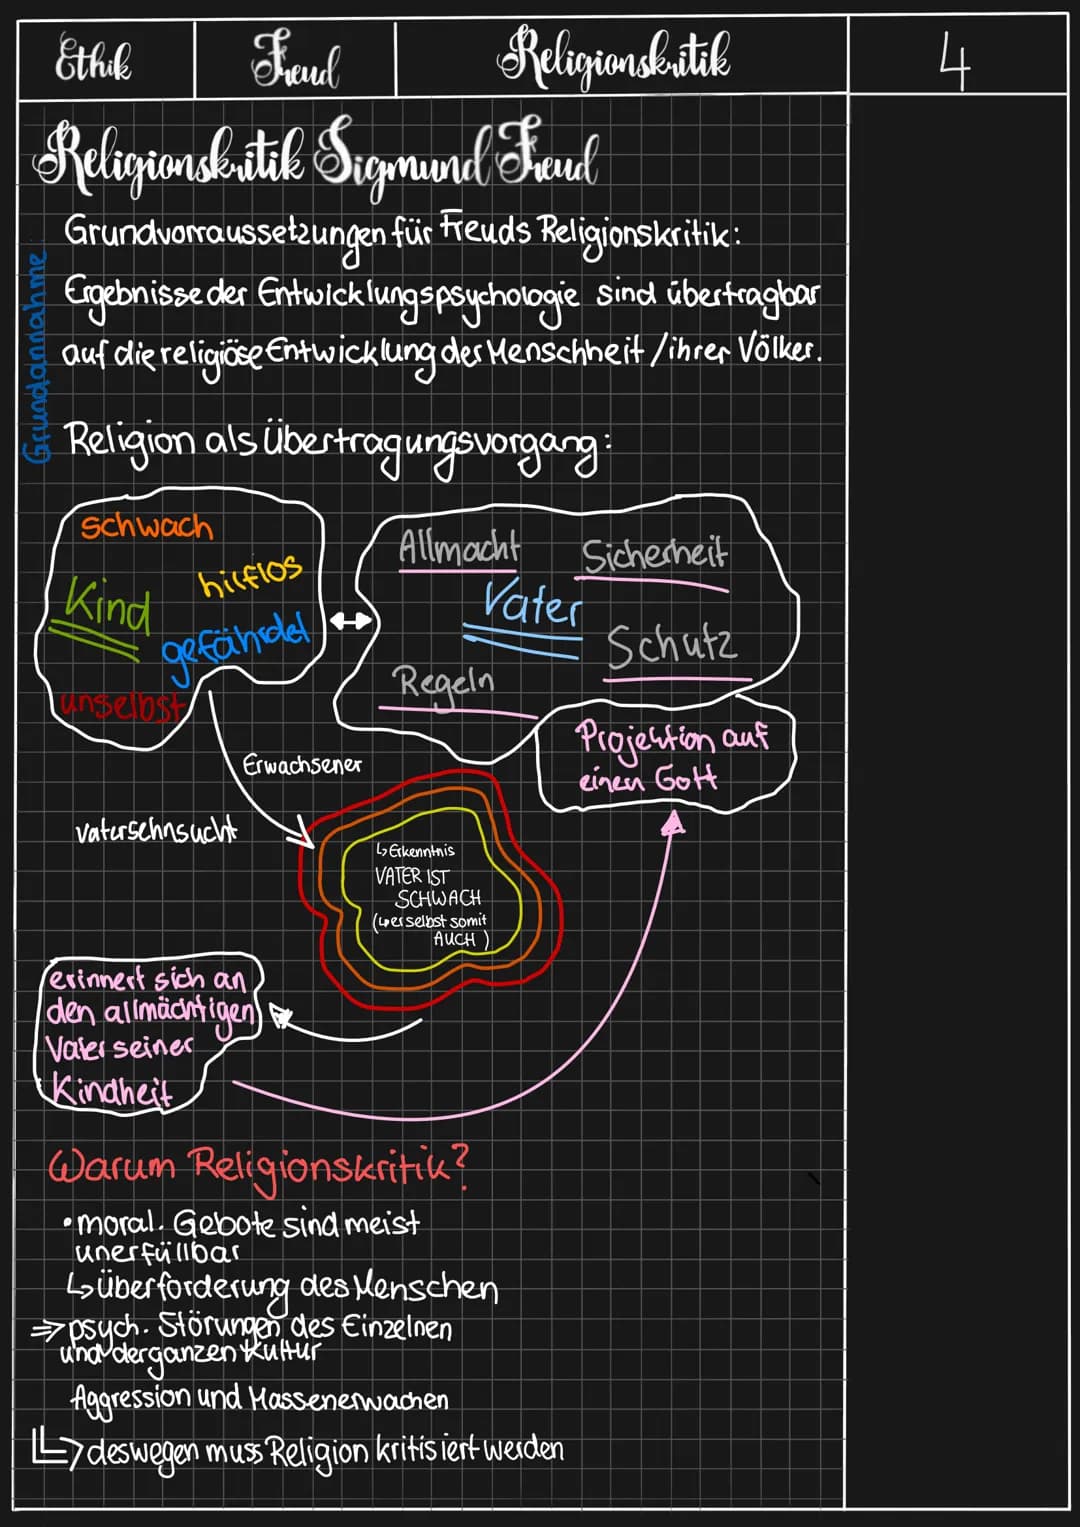 Ethik
Freud
Religionskritik
4
Religionskritik Sigmund Freud
Grundannahme
Grundvorraussetzungen für Freuds Religionskritik:
Ergebnisse der Entwicklungspsychologie sind übertragbar
auf die religiöse Entwicklung der Menschheit / ihrer Völker.
Religion als Übertragungsvorgang:
schwach
hilflos
Kind
gefährdet
unselbst
Allmacht
Sicherheit
Vater
Schutz
Regeln
Projektion auf
einen Gott
Erwachsener
Vatersehnsucht
↳ Erkenntnis
VATER IST
SCHWACH
(↳ er selbst somit
AUCH )
erinnert sich an
den allmächtigen
Vater seiner
Kindheit
Warum Religionskritik?
• moral. Gebote sind meist
unerfüllbar
↳ Überforderung des Menschen
⇒ psych. Störungen des Einzelnen
und der ganzen Kultur
Aggression und Massenerwachen
↳ deswegen muss Religion kritisiert werden